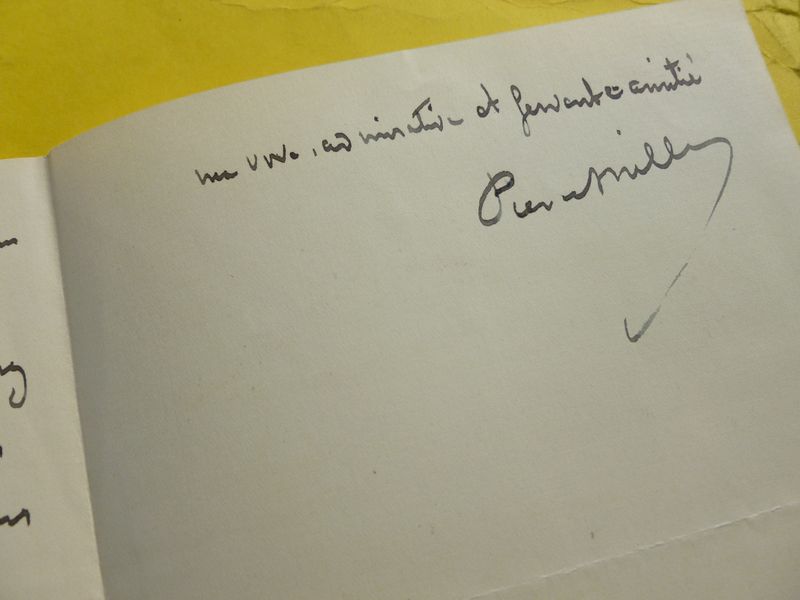 ma vive, admirative et fervente amitié
Pierre Mille